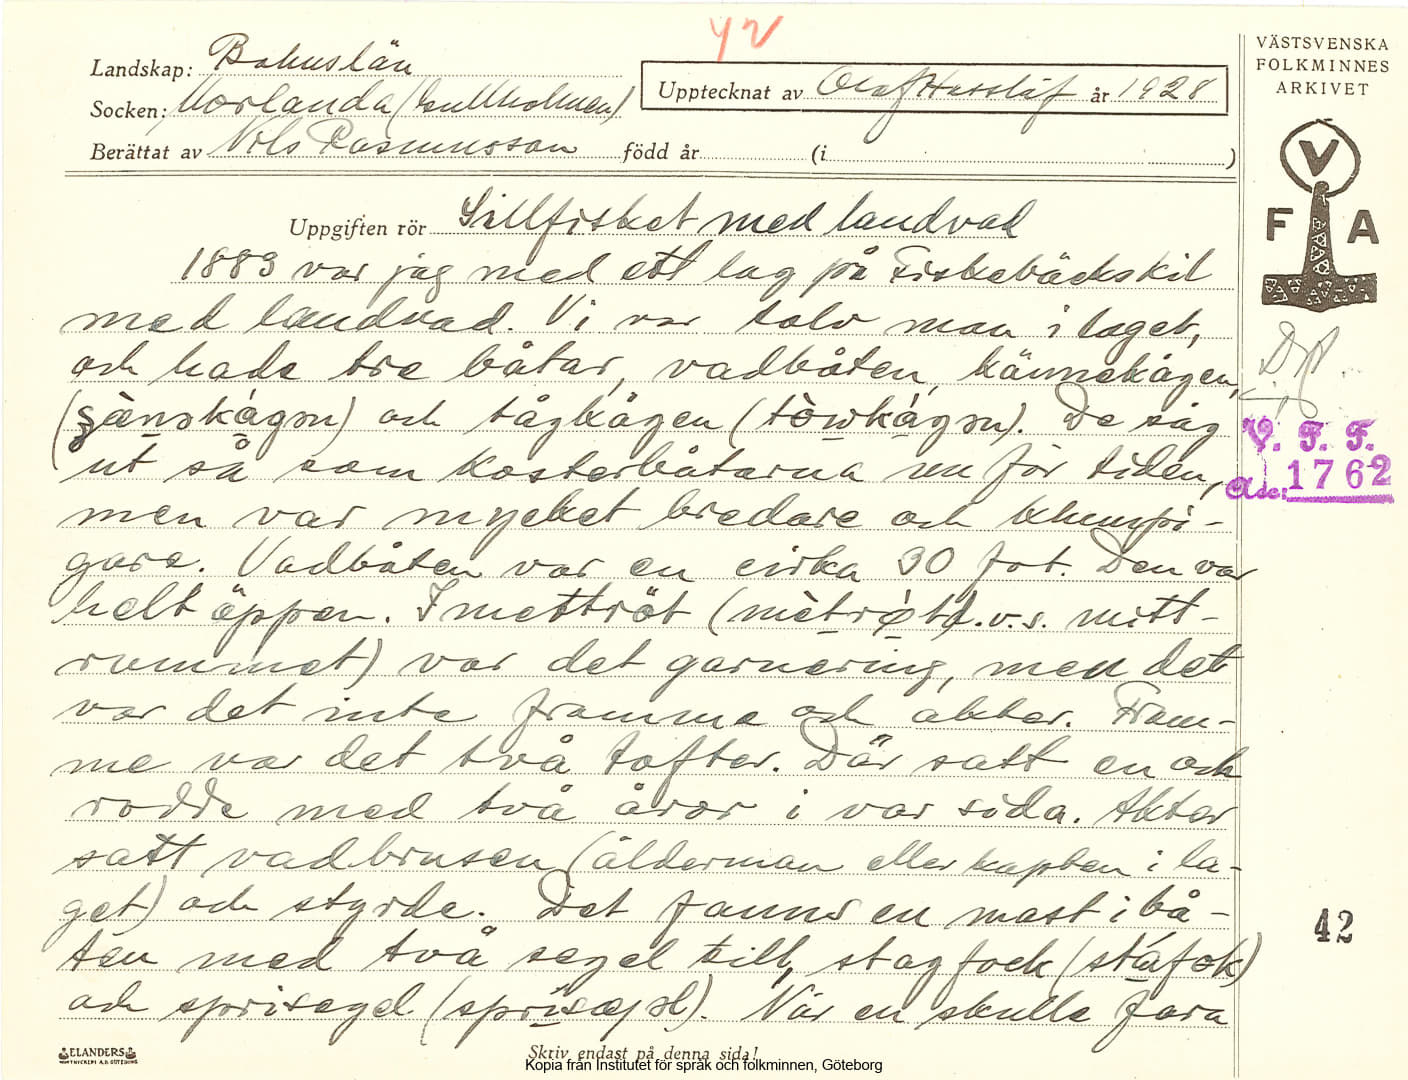 42
Landskap: Bohuslän
Socken: Morlanda (Gullholmen)
Upptecknat av Olof Hasslöf år 1928
Berättat av Nils Rasmusson född år (i )
VÄSTSVENSKA
FOLKMINNES
ARKIVET
V
F A
Uppgiften rör Sillfisket med landvad
1883 var jag med ett lag på Fiskebäckskil
med landvad. Vi var tolv man i laget,
och hade tre båtar, vadbåten, kännekågen,
(çæ̀nskágən) och tågkågen (tòwkágən). De såg
ut så som kosterbåtarna nu för tiden,
men var mycket bredare och klumpi-
gare. Vadbåten var en cirka 30 fot. Den var
helt öppen. I mettröt (mètrøt d.v.s. mitt-
rummet) var det garnering, men det
var det inte framme och akter. Fram-
me var det två tofter. Där satt en och
rodde med två åror i var sida. Akter
satt vadbrusen (ålderman eller kapten i la-
get) och styrde. Det fanns en mast i bå-
ten med två segel till, stagfock (stáfok)
och sprisegel (sprìsæjəl). När en skulle fara
V. F. F.
Acc: 1762
42
ELANDERS
BOKTRYCKERI A.B. GÖTEBORG
Skriv endast på denna sida!
Kopia från Institutet för språk och folkminnen, Göteborg